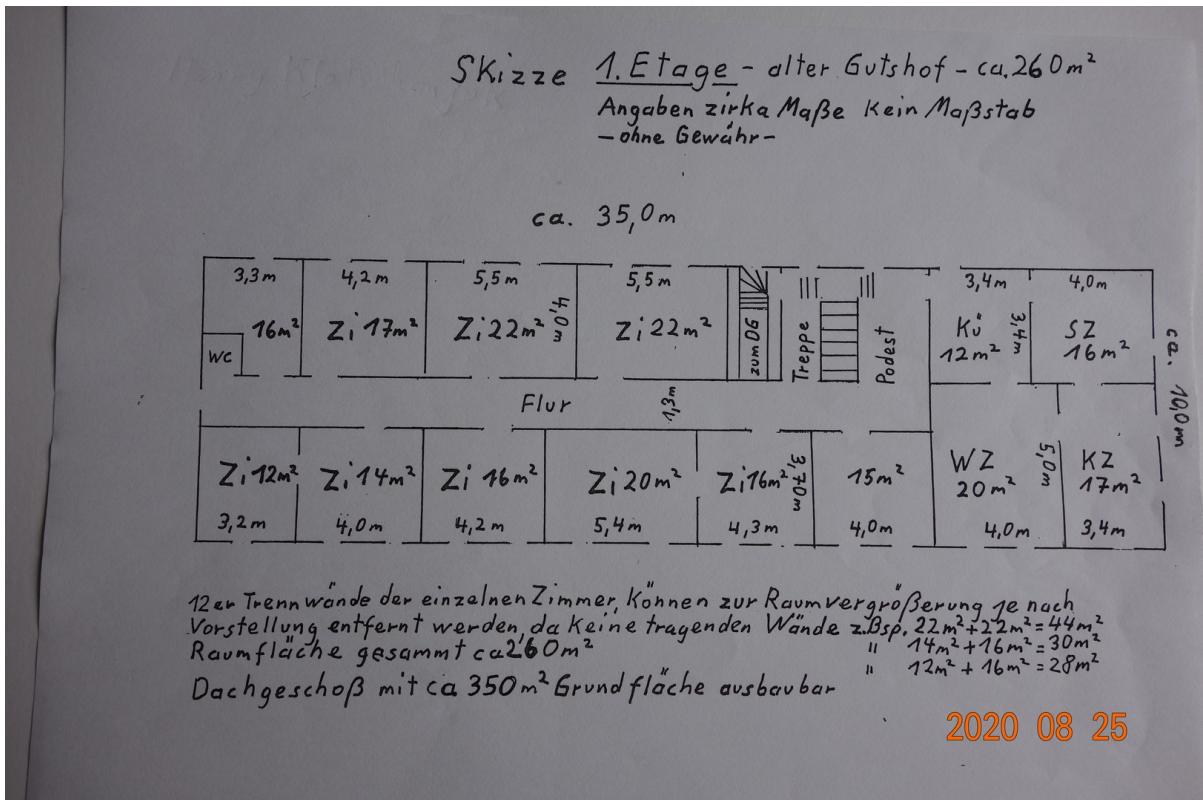 Skizze 1. Etage - alter Gutshof - ca. 260m²
Angaben zirka Maße Kein Maßstab
- ohne Gewähr -
ca. 35,0m
3,3m
4,2m
5,5m
5,5m
3,4m
4,0m
16m²
WC
Zi 17m²
Zi 22m²
4,0m
Zi 22m²
zum DG
Treppe
Podest
Kü
12m²
3,4m
SZ
16m²
ca. 10,0m
Flur
1,3m
Zi 12m²
Zi 14m²
Zi 16m²
Zi 20m²
Zi 16m²
3,70m
15m²
WZ
20m²
5,0m
KZ
17m²
3,2m
4,0m
4,2m
5,4m
4,3m
4,0m
4,0m
3,4m
12er Trennwände der einzelnen Zimmer, Können zur Raumvergrößerung je nach
Vorstellung entfernt werden, da Keine tragenden Wände z.Bsp. 22m² + 22m² = 44m²
Raumfläche gesammt ca 260m² " 14m² + 16m² = 30m²
" 12m² + 16m² = 28m²
Dachgeschoß mit ca 350m² Grundfläche ausbaubar
2020 08 25